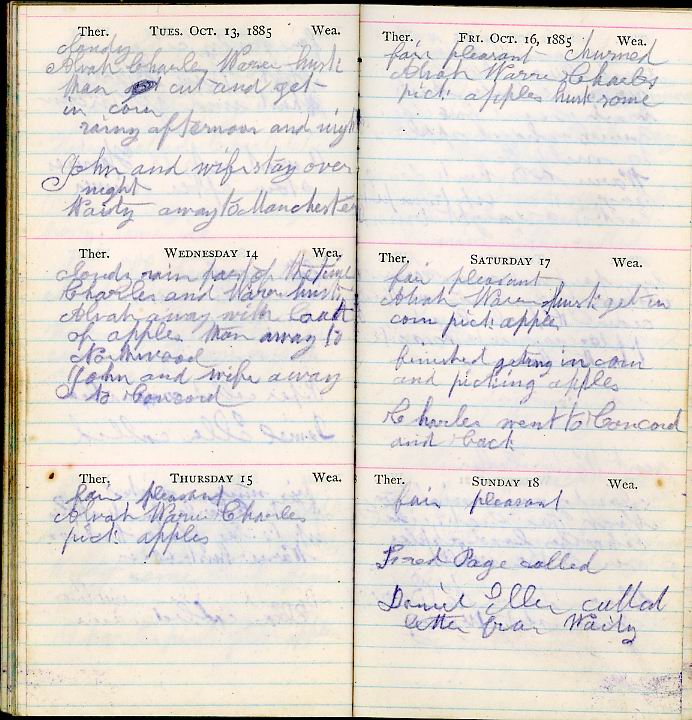 Ther. TUES. OCT. 13, 1885 Wea.
Cloudy
Alvah Charley Warren husk
than cut and get
in corn
rainy afternoon and night
John and wife stay over
night
Waity away to Manchester
Ther. WEDNESDAY 14 Wea.
Cloudy rain part of the time
Charles and Warren husk
Alvah away with load
of apples than away to
Northwood
John and wife away
to Concord
Ther. THURSDAY 15 Wea.
fair pleasant
Alvah Warren Charles
pick apples
Ther. FRI. OCT. 16, 1885 Wea.
fair pleasant churned
Alvah Warren Charles
pick apples husk some
Ther. SATURDAY 17 Wea.
fair pleasant
Alvah Warren husk get in
corn pick apples
finished geting in corn
and picking apples
Charles went to Concord
and back
Ther. SUNDAY 18 Wea.
fair pleasant
Fred Page called
Daniel Ellen called
letter from Waity